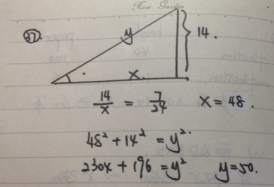 37.
y
14.
x
14/x = 7/24 x = 48.
48² + 14² = y².
230x + 196 = y² y = 50.